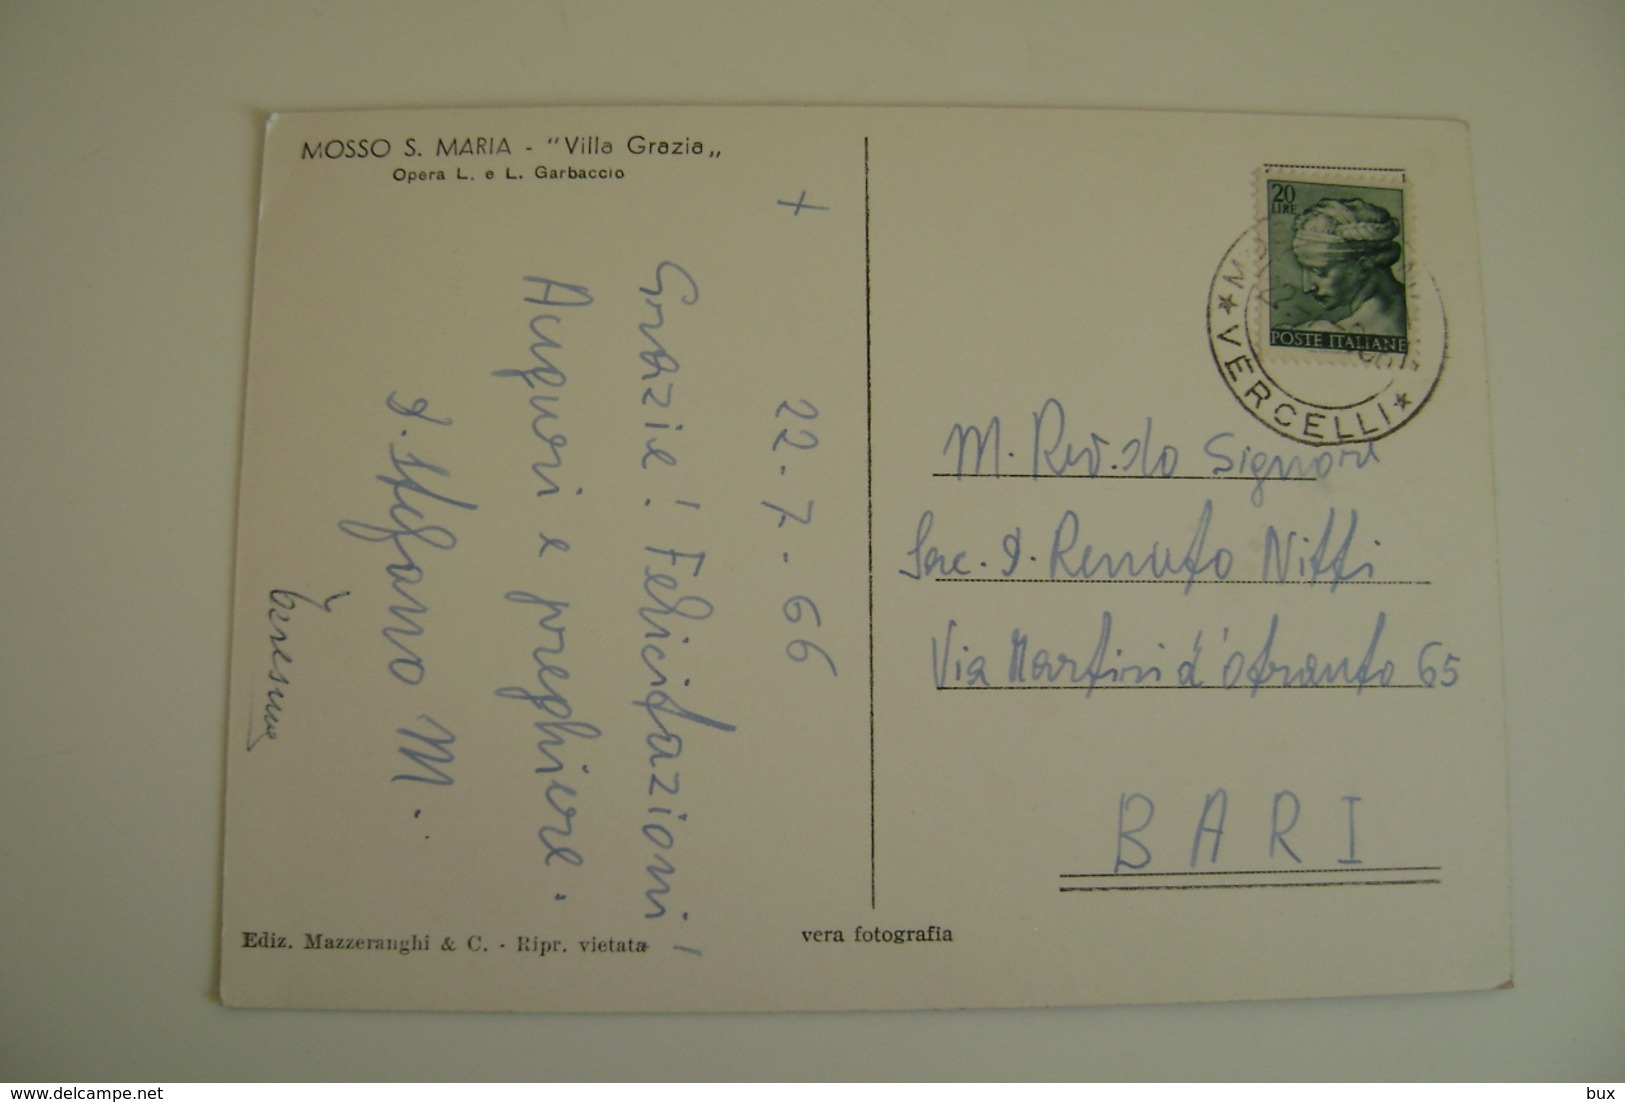 MOSSO S. MARIA - "Villa Grazia„
Opera L. e L. Garbaccio
+
22-7-66
Grazie! Felicitazioni!
Auguri e preghiere.
d. Stefano M.
Teresina
Ediz. Mazzeranghi & C. - Ripr. vietata
vera fotografia
20
LIRE
POSTE ITALIANE
VERCELLI
M. Rev.do Signore
Sac. d. Renato Nitti
Via Martiri d'Otranto 65
BARI
delcampe.net
bux